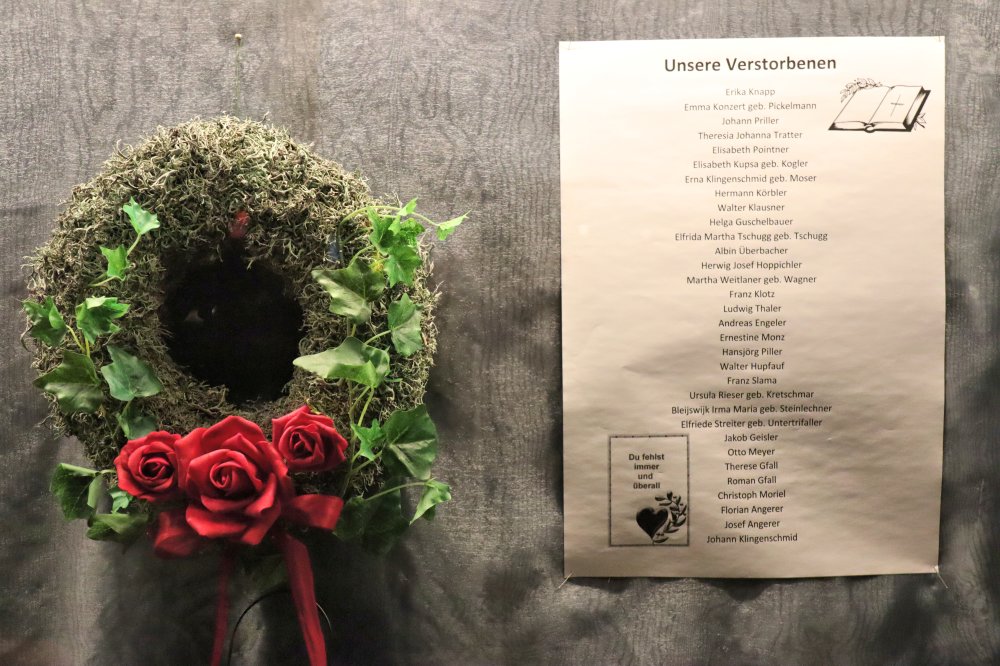 Unsere Verstorbenen
Erika Knapp
Emma Konzert geb. Pickelmann
Johann Priller
Theresia Johanna Tratter
Elisabeth Pointner
Elisabeth Kupsa geb. Kogler
Erna Klingenschmid geb. Moser
Hermann Körbler
Walter Klausner
Helga Guschelbauer
Elfrida Martha Tschugg geb. Tschugg
Albin Überbacher
Herwig Josef Hoppichler
Martha Weitlaner geb. Wagner
Franz Klotz
Ludwig Thaler
Andreas Engeler
Ernestine Monz
Hansjörg Piller
Walter Hupfauf
Franz Slama
Ursula Rieser geb. Kretschmar
Bleijswijk Irma Maria geb. Steinlechner
Elfriede Streiter geb. Untertrifaller
Jakob Geisler
Otto Meyer
Therese Gfall
Roman Gfall
Christoph Moriel
Florian Angerer
Josef Angerer
Johann Klingenschmid
Du fehlst
immer
und
überall